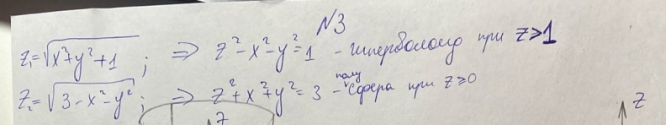 N3
z₁=√(x²+y²+1); ⇒ z²-x²-y²=1 - гиперболоид при z>1
z₂=√(3-x²-y²); ⇒ z²+x²+y²=3 - полусфера при z≥0
z
z